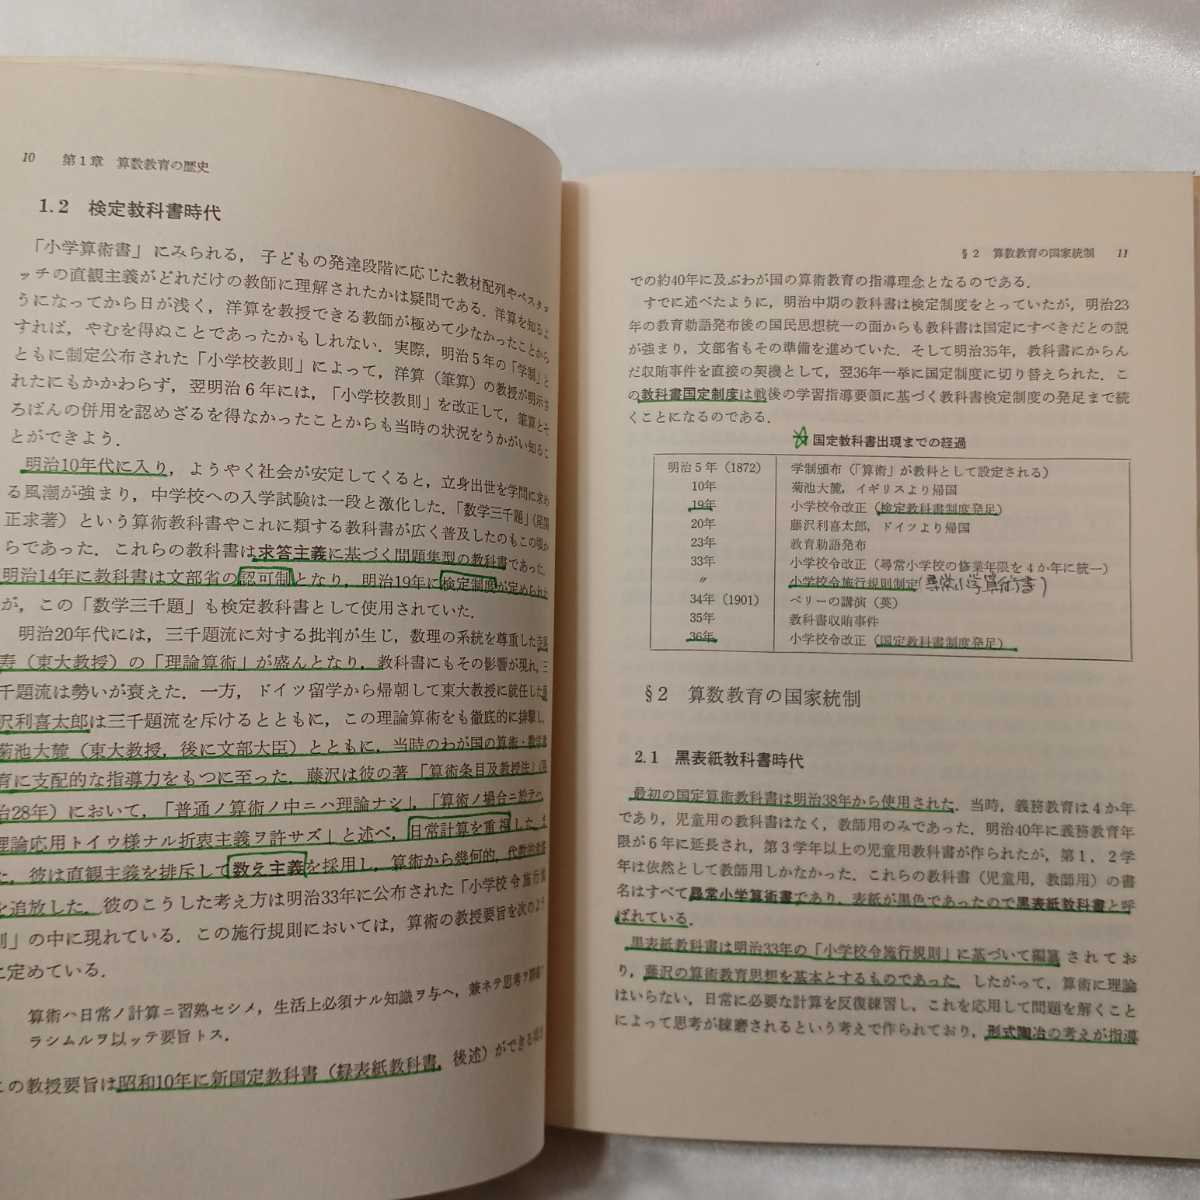 10　第1章　算数教育の歴史
1.2　検定教科書時代
「小学算術書」にみられる，子どもの発達段階に応じた教材配列やペスタロ
ッチの直観主義がどれだけの教師に理解されたかは疑問である．洋算を知るよ
うになってから日が浅く，洋算を教授できる教師が極めて少なかったことから
すれば，やむを得ぬことであったかもしれない．実際，明治5年の「学制」と
ともに制定公布された「小学校教則」によって，洋算（筆算）の教授が明示さ
れたにもかかわらず，翌明治6年には，「小学校教則」を改正して，筆算とそ
ろばんの併用を認めざるを得なかったことからも当時の状況をうかがい知るこ
とができよう．
明治10年代に入り，ようやく社会が安定してくると，立身出世を学問に求め
る風潮が強まり，中学校への入学試験は一段と激化した．「数学三千題」（尾関
正求著）という算術教科書やこれに類する教科書が広く普及したのもこの頃か
らであった．これらの教科書は求答主義に基づく問題集型の教科書であった．
明治14年に教科書は文部省の認可制となり，明治19年に検定制度が定められた
が，この「数学三千題」も検定教科書として使用されていた．
明治20年代には，三千題流に対する批判が生じ，数理の系統を尊重した寺尾
寿（東大教授）の「理論算術」が盛んとなり，教科書にもその影響が現れ，三
千題流は勢いが衰えた．一方，ドイツ留学から帰朝して東大教授に就任した藤
沢利喜太郎は三千題流を斥けるとともに，この理論算術をも徹底的に排撃し，
菊池大麓（東大教授，後に文部大臣）とともに，当時のわが国の算術・数学教
育に支配的な指導力をもつに至った．藤沢は彼の著「算術条目及教授法」（明
治28年）において，「普通ノ算術ノ中ニハ理論ナシ」，「算術ノ場合ニ於テハ
理論応用トイウ様ナル折衷主義ヲ許サズ」と述べ，日常計算を重視した．ま
た，彼は直観主義を排斥して数え主義を採用し，算術から幾何的，代数的
を追放した．彼のこうした考え方は明治33年に公布された「小学校令施行規
則」の中に現れている．この施行規則においては，算術の教授要旨を次のよう
に定めている．
算術ハ日常ノ計算ニ習熟セシメ，生活上必須ナル知識ヲ与ヘ，兼ネテ思考ヲ
ラシムルヲ以ッテ要旨トス．
この教授要旨は昭和10年に新国定教科書（緑表紙教科書，後述）ができる
§2　算数教育の国家統制　11
での約40年に及ぶわが国の算術教育の指導理念となるのである．
すでに述べたように，明治中期の教科書は検定制度をとっていたが，明治23
年の教育勅語発布後の国民思想統一の面からも教科書は国定にすべきだとの説
が強まり，文部省もその準備を進めていた．そして明治35年，教科書にからん
だ収賄事件を直接の契機として，翌36年一挙に国定制度に切り替えられた．こ
の教科書国定制度は戦後の学習指導要領に基づく教科書検定制度の発足まで続
くことになるのである．
☆国定教科書出現までの経過
明治5年（1872）　学制頒布（「算術」が教科として設定される）
10年　菊池大麓，イギリスより帰国
19年　小学校令改正（検定教科書制度発足）
20年　藤沢利喜太郎，ドイツより帰国
23年　教育勅語発布
33年　小学校令改正（尋常小学校の修業年限を4か年に統一）
〃　小学校令施行規則制定（尋常小学算術書）
34年（1901）　ペリーの講演（英）
35年　教科書収賄事件
36年　小学校令改正（国定教科書制度発足）
§2　算数教育の国家統制
2.1　黒表紙教科書時代
最初の国定算術教科書は明治38年から使用された．当時，義務教育は4か年
であり，児童用の教科書はなく，教師用のみであった．明治40年に義務教育年
限が6年に延長され，第3学年以上の児童用教科書が作られたが，第1，2学
年は依然として教師用しかなかった．これらの教科書（児童用，教師用）の書
名はすべて尋常小学算術書であり，表紙が黒色であったので黒表紙教科書と呼
ばれている．
黒表紙教科書は明治33年の「小学校令施行規則」に基づいて編纂されてお
り，藤沢の算術教育思想を基本とするものであった．したがって，算術に理論
はいらない，日常に必要な計算を反復練習し，これを応用して問題を解くこと
によって思考が練磨されるという考えで作られており，形式陶冶の考えが指導